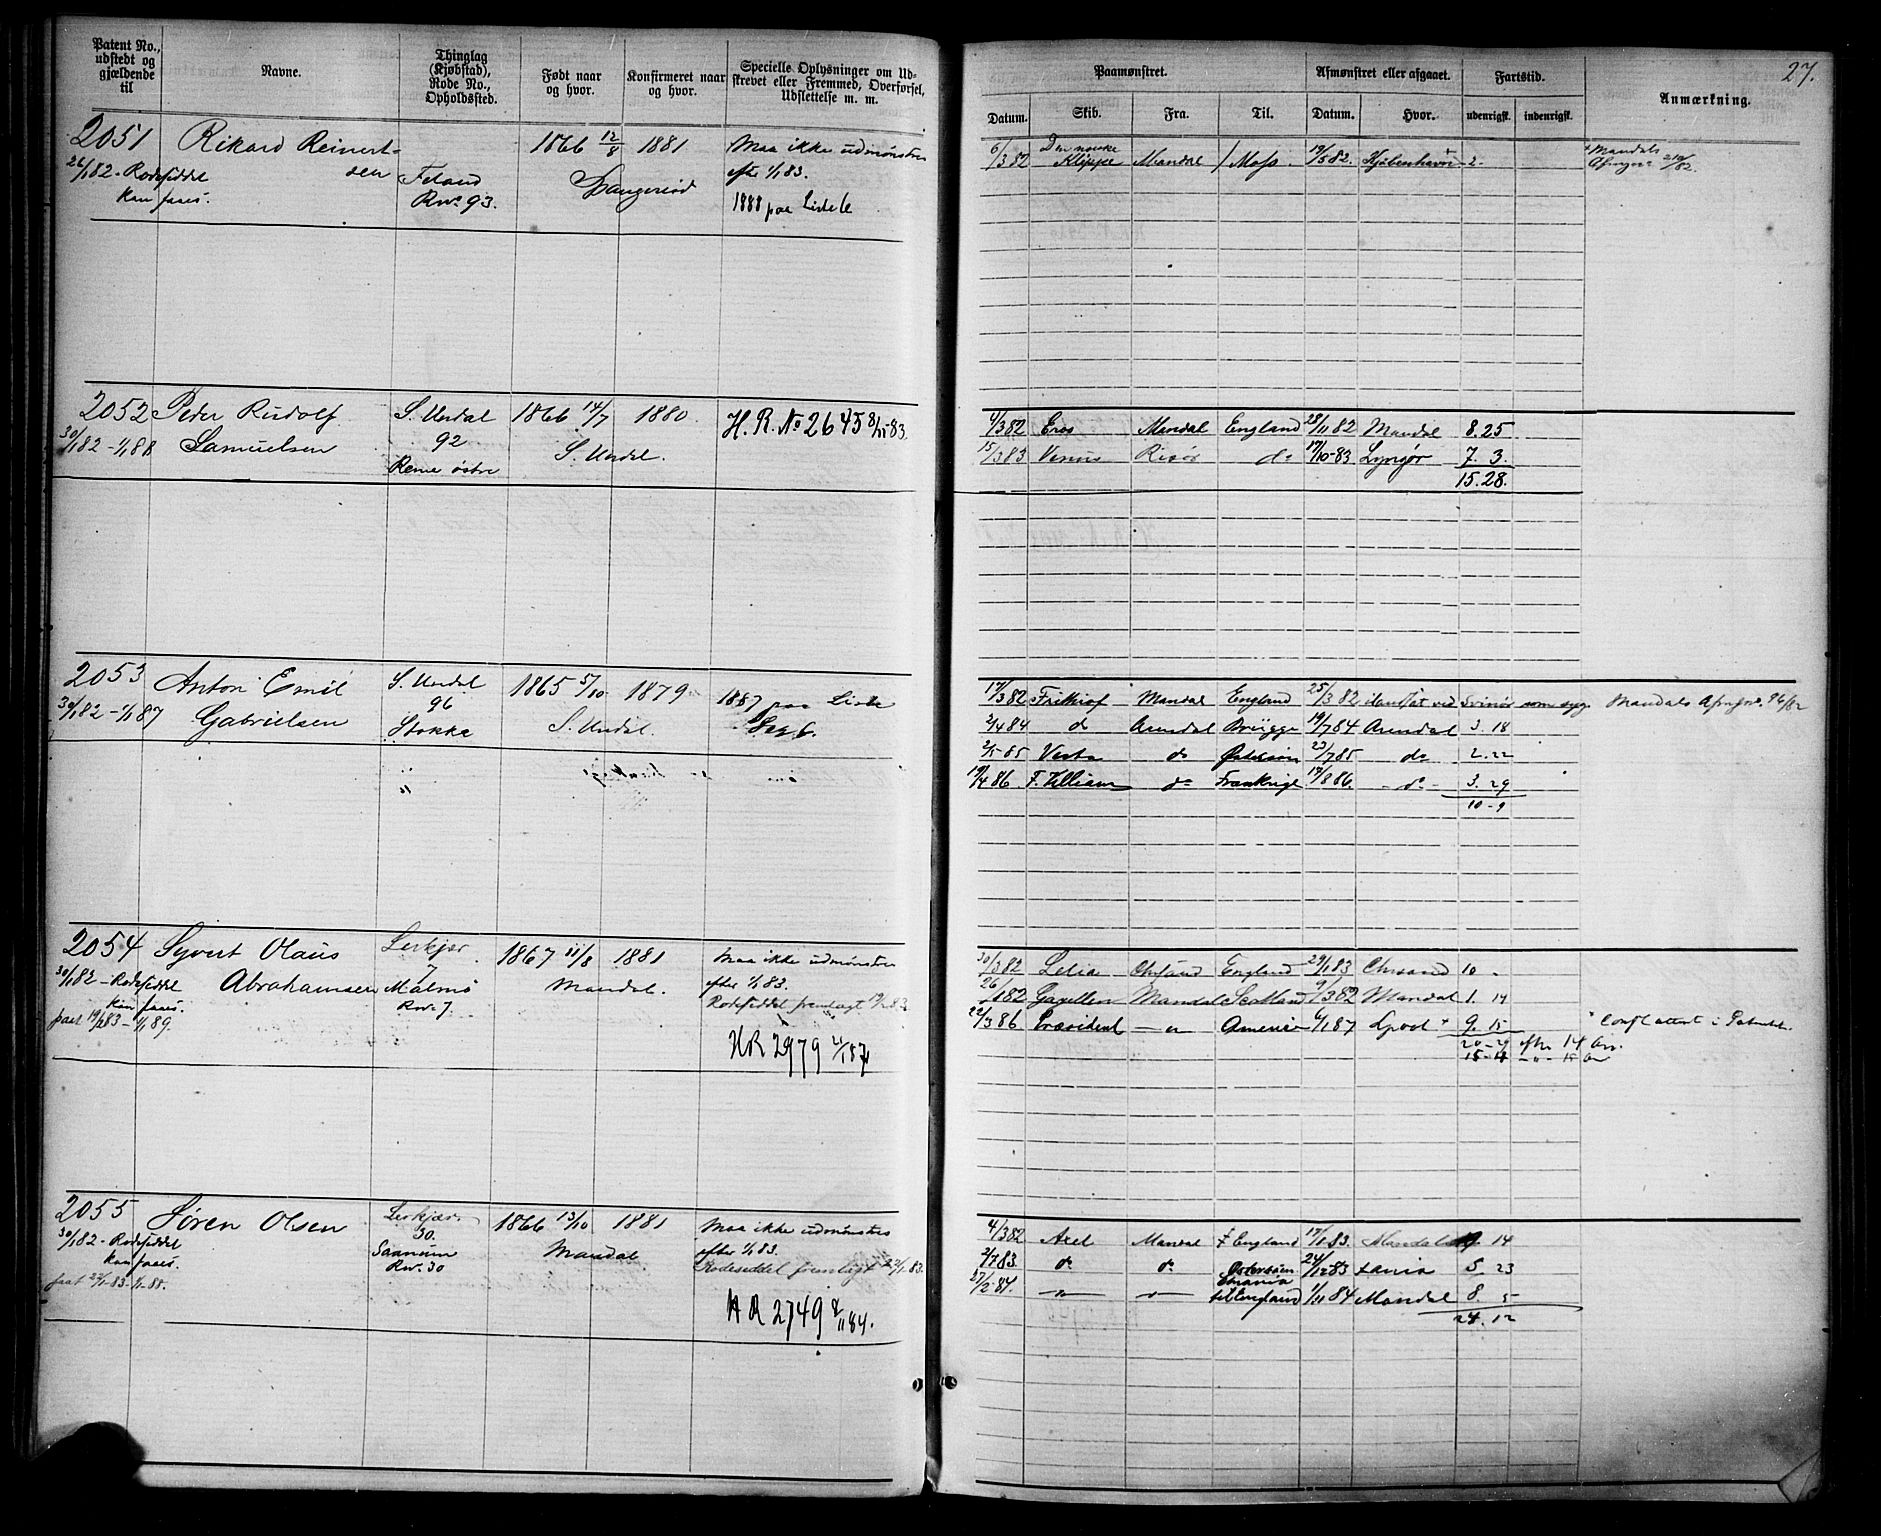 27.
Patent No., udstedt og gjældende til
Navne.
Thinglag (Kjøbstad), Rode No., Opholdssted.
Født naar og hvor.
Konfirmeret naar og hvor.
Specielle Oplysninger om Udskrevet eller Fremmed, Overførsel, Udslettelse m. m.
Paamønstret.
Afmønstret eller afgaaet.
Fartstid.
Anmærkning.
Datum.
Skib.
Fra.
Til.
Datum.
Hvor.
udenrigsk.
indenrigsk.
2051 Rikard Reinert- 1866 12/8 1881 Maa ikke udmønstres
26/1 82 - Rodeseddel sen Feland efter 1/1 83.
kan faaes. Rno 93. 1888 paa Liste 6
6/3 82 Den norske Klipper Mandal Moss 19/5 82 Kjøbenhavn 2 - Mandals
2052 Peder Rudolf S. Undal 1866 14/7 1880 H. R. No 2645 8/11-83.
30/1 82 - 1/1 88 Samuelsen 92 S. Undal.
Reme østre
4/3 82 Eros Mandal England 28/11 82 Mandal 8.25
15/3 83 Venus Risør do 17/10-83 Lyngør 7. 3.
15.28.
2053 Anton Emil S. Undal 1865 5/10 1879 1887 paa Liste
30/1 82 - 1/1 87 Gabrielsen 96 S. Undal.
Stokke
17/3 82 Frithiof Mandal England 25/3 82 ved Svinør som syg. Mandals
2/4 84 d Arendal Brügge 19/7 84 Arendal 3. 18
2/5-85 Vesta do Østersøen 23/7 85 do 2.22
19/4 86. do Frankrige 17/8 86. - do - 3. 29
10 - 9
2054 Syvert Olaus 1867 11/8 1881 Maa ikke udmønstres
30/1 82 - Rodeseddel Abrahamsen 7 Malmø Mandal. efter 1/1 83.
kan faaes. Rno 7. Rodeseddel fremlagt 19/2 83
paat 19/2 83 - 1/1 89.
HR 2979 4/1 87
30/3 82 Lelia Chrsand England 29/1 83 Chrsand 10 -
26/1 82 Gazellen Mandal Scotland 9/3 82 Mandal 1. 14
22/3 86 Præsident - " Amerika 6/1 87 Lpool + 9. 15
20-29 efter 14 Aar.
15-4 -"- 15 Aar
2055 Søren Olsen 1866 13/10 1881 Maa ikke udmønstres
30/1 82 - Rodeseddel 30. Mandal efter 1/1 83.
kan faaes. Rno 30 Rodeseddel fremlagt 22/1-83.
paat 22/1-83-1/1-88.
HR 2749 8/11 84.
4/3 82 Axel Mandal England 17/1 83. Mandal 14
2/7 83 do do Østersøen 24/12 83 5 23
27/2-84. " " til England 1/11 84 Mandal 8. 5
24. 12